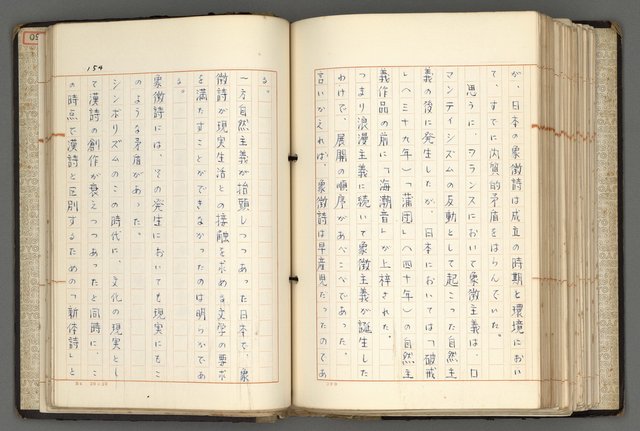 が、日本の象徴詩は成立の時期と環境におい
て、すでに内質的矛盾をはらんでいた。
思うに、フランスにおいて象徴主義は、ロ
マンティシズムの反動として起こった自然主
義の後に発生したが、日本においては「破戒
」(三十九年)「蒲団」(四十年)の自然主
義作品の前に「海潮音」が上梓された。
つまり浪漫主義に続いて象徴主義が誕生した
わけで、展開の順序があべこべであった。
言いかえれば、象徴詩は早産児だったのであ
154
る。
一方自然主義が抬頭しつつあった日本で、象
徴詩が現実生活との接触を求める文学の要求
を満たすことができなかったのは明らかであ
る。
象徴詩には、その発生においても現実にもこ
のような矛盾があった。
シンボリズムのこの時代に、文化の現実とし
て漢詩の創作が衰えつつあったと同時に、こ
の時点で漢詩と区別するための「新体詩」と
50
20×20